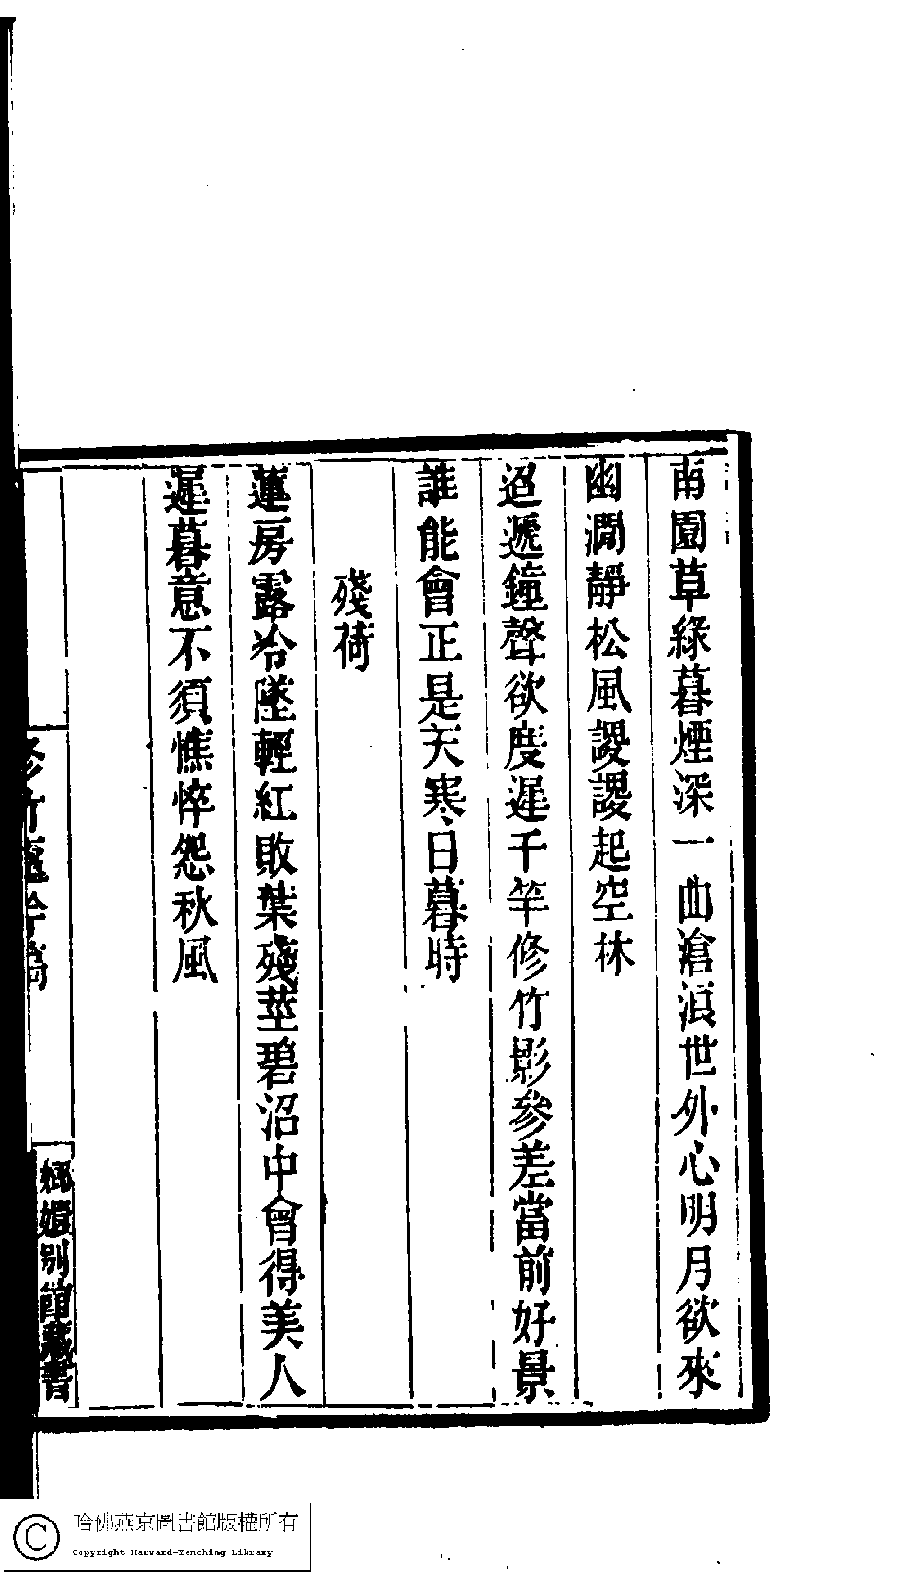 南園草綠暮煙深一曲滄浪世外心明月欲來
幽澗靜松風謖謖起空林
迢遞鐘聲欲度遲千竿修竹影參差當前好景
誰能會正是天寒日暮時
殘荷
蓮房露冷墜輕紅敗葉殘莖碧沼中會得美人
遲暮意不須憔悴怨秋風
修竹廬吟稿
嫏嬛別館藏書
哈佛燕京圖書館版權所有
Copyright Harvard-Yenching Library